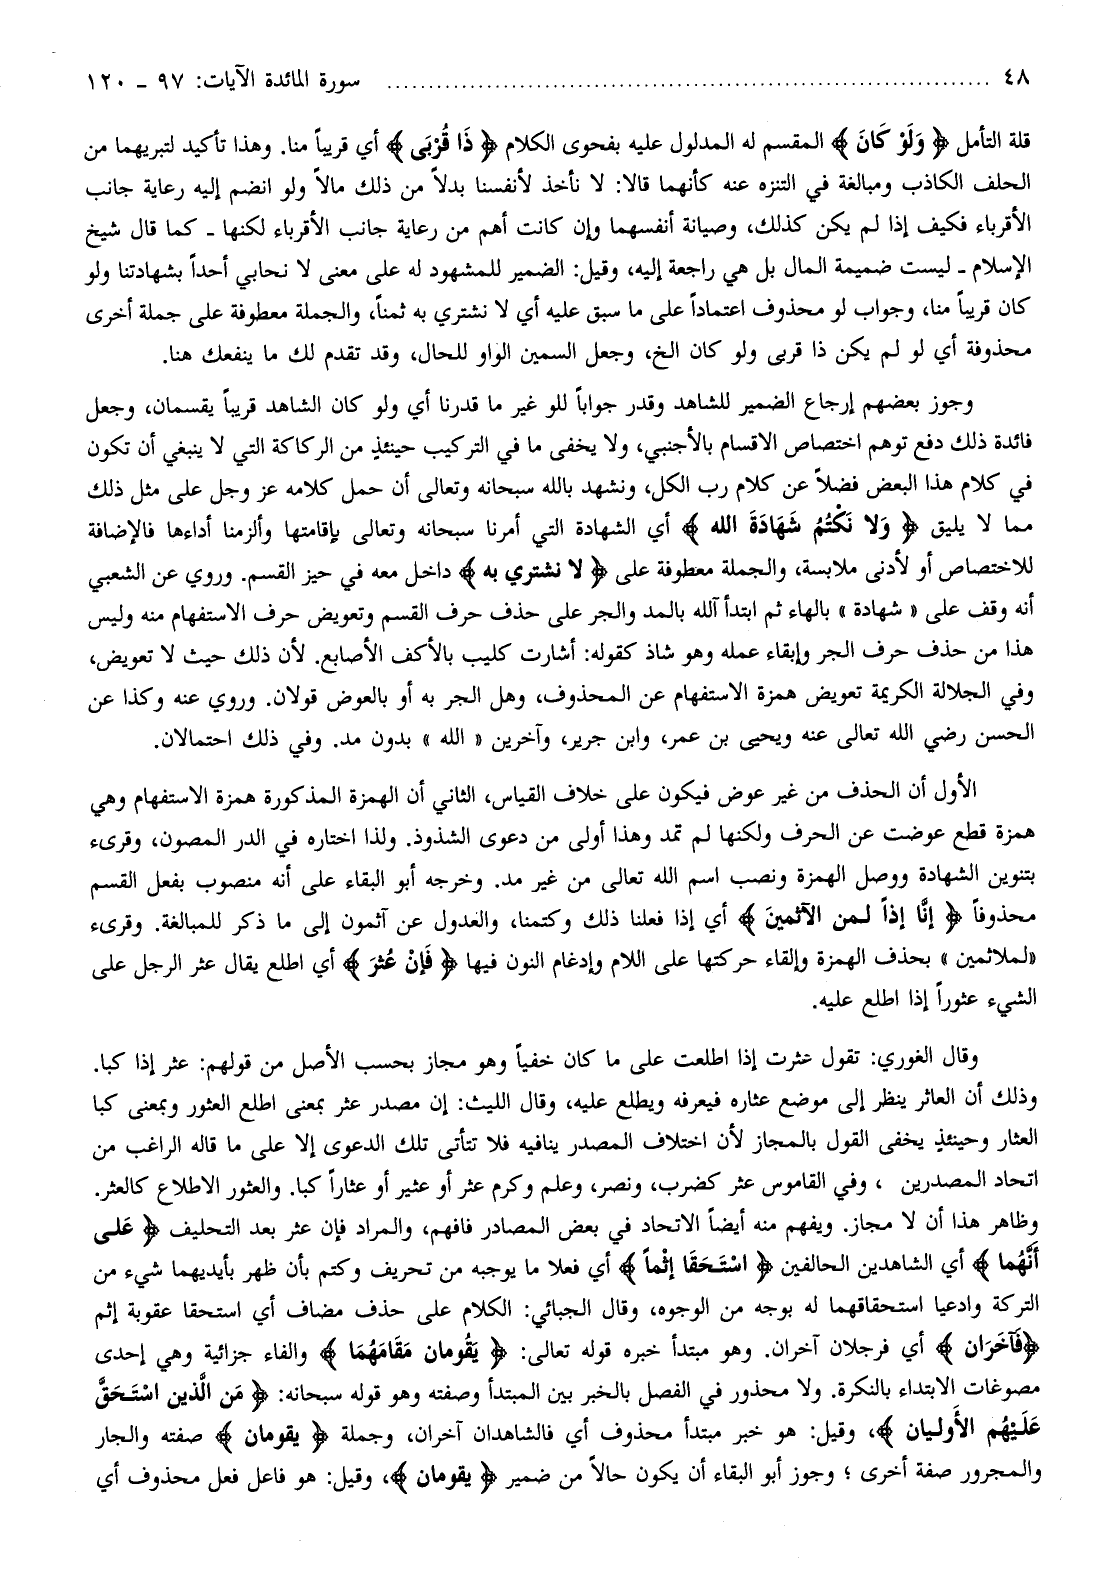 ٤٨ ........................................................ سورة المائدة الآيات: ٩٧ ـ ١٢٠
قلة التأمل ﴿ وَلَوْ كَانَ ﴾ المقسم له المدلول عليه بفحوى الكلام ﴿ ذَا قُرْبَى ﴾ أي قريباً منا. وهذا تأكيد لتبريهما من
الحلف الكاذب ومبالغة في التنزه عنه كأنهما قالا: لا نأخذ لأنفسنا بدلاً من ذلك مالاً ولو انضم إليه رعاية جانب
الأقرباء فكيف إذا لم يكن كذلك، وصيانة أنفسهما وإن كانت أهم من رعاية جانب الأقرباء لكنها ـ كما قال شيخ
الإسلام ـ ليست ضميمة المال بل هي راجعة إليه، وقيل: الضمير للمشهود له على معنى لا نحابي أحداً بشهادتنا ولو
كان قريباً منا، وجواب لو محذوف اعتماداً على ما سبق عليه أي لا نشتري به ثمناً، والجملة معطوفة على جملة أخرى
محذوفة أي لو لم يكن ذا قربى ولو كان الخ، وجعل السمين الواو للحال، وقد تقدم لك ما ينفعك هنا.
وجوز بعضهم إرجاع الضمير للشاهد وقدر جواباً للو غير ما قدرنا أي ولو كان الشاهد قريباً يقسمان، وجعل
فائدة ذلك دفع توهم اختصاص الاقسام بالأجنبي، ولا يخفى ما في التركيب حينئذٍ من الركاكة التي لا ينبغي أن تكون
في كلام هذا البعض فضلاً عن كلام رب الكل، ونشهد بالله سبحانه وتعالى أن حمل كلامه عز وجل على مثل ذلك
مما لا يليق ﴿ وَلا نَكْتُمُ شَهَادَةَ الله ﴾ أي الشهادة التي أمرنا سبحانه وتعالى بإقامتها وألزمنا أداءها فالإضافة
للاختصاص أو لأدنى ملابسة، والجملة معطوفة على ﴿ لا نشتري به ﴾ داخل معه في حيز القسم. وروي عن الشعبي
أنه وقف على « شهادة » بالهاء ثم ابتدأ آلله بالمد والجر على حذف حرف القسم وتعويض حرف الاستفهام منه وليس
هذا من حذف حرف الجر وإبقاء عمله وهو شاذ كقوله: أشارت كليب بالأكف الأصابع. لأن ذلك حيث لا تعويض،
وفي الجلالة الكريمة تعويض همزة الاستفهام عن المحذوف، وهل الجر به أو بالعوض قولان. وروي عنه وكذا عن
الحسن رضي الله تعالى عنه ويحيى بن عمر، وابن جرير، وآخرين « الله » بدون مد. وفي ذلك احتمالان.
الأول أن الحذف من غير عوض فيكون على خلاف القياس، الثاني أن الهمزة المذكورة همزة الاستفهام وهي
همزة قطع عوضت عن الحرف ولكنها لم تمد وهذا أولى من دعوى الشذوذ. ولذا اختاره في الدر المصون، وقرىء
بتنوين الشهادة ووصل الهمزة ونصب اسم الله تعالى من غير مد. وخرجه أبو البقاء على أنه منصوب بفعل القسم
محذوفاً ﴿ إنَّا إذاً لمن الآثمينَ ﴾ أي إذا فعلنا ذلك وكتمنا، والعدول عن آثمون إلى ما ذكر للمبالغة. وقرىء
«لملاثمين » بحذف الهمزة وإلقاء حركتها على اللام وإدغام النون فيها ﴿ فَإنْ عُثرَ ﴾ أي اطلع يقال عثر الرجل على
الشيء عثوراً إذا اطلع عليه.
وقال الغوري: تقول عثرت إذا اطلعت على ما كان خفياً وهو مجاز بحسب الأصل من قولهم: عثر إذا كبا.
وذلك أن العاثر ينظر إلى موضع عثاره فيعرفه ويطلع عليه، وقال الليث: إن مصدر عثر بمعنى اطلع العثور وبمعنى كبا
العثار وحينئذٍ يخفى القول بالمجاز لأن اختلاف المصدر ينافيه فلا تتأتى تلك الدعوى إلا على ما قاله الراغب من
اتحاد المصدرين ، وفي القاموس عثر كضرب، ونصر، وعلم وكرم عثر أو عثير أو عثاراً كبا. والعثور الاطلاع كالعثر.
وظاهر هذا أن لا مجاز. ويفهم منه أيضاً الاتحاد في بعض المصادر فافهم، والمراد فإن عثر بعد التحليف ﴿ عَلى
أَنَّهُما ﴾ أي الشاهدين الحالفين ﴿ اسْتَحَقا إثْماً ﴾ أي فعلا ما يوجبه من تحريف وكتم بأن ظهر بأيديهما شيء من
التركة وادعيا استحقاقهما له بوجه من الوجوه، وقال الجبائي: الكلام على حذف مضاف أي استحقا عقوبة إثم
﴿فَآخَرَان ﴾ أي فرجلان آخران. وهو مبتدأ خبره قوله تعالى: ﴿ يَقُومان مَقَامَهُمَا ﴾ والفاء جزائية وهي إحدى
مصوغات الابتداء بالنكرة. ولا محذور في الفصل بالخبر بين المبتدأ وصفته وهو قوله سبحانه: ﴿ مَن الَّذين اسْتَحَقَّ
عَلَيْهُم الأَوليان ﴾، وقيل: هو خبر مبتدأ محذوف أي فالشاهدان آخران، وجملة ﴿ يقومان ﴾ صفته والجار
والمجرور صفة أخرى ؛ وجوز أبو البقاء أن يكون حالاً من ضمير ﴿ يقومان ﴾، وقيل: هو فاعل فعل محذوف أي